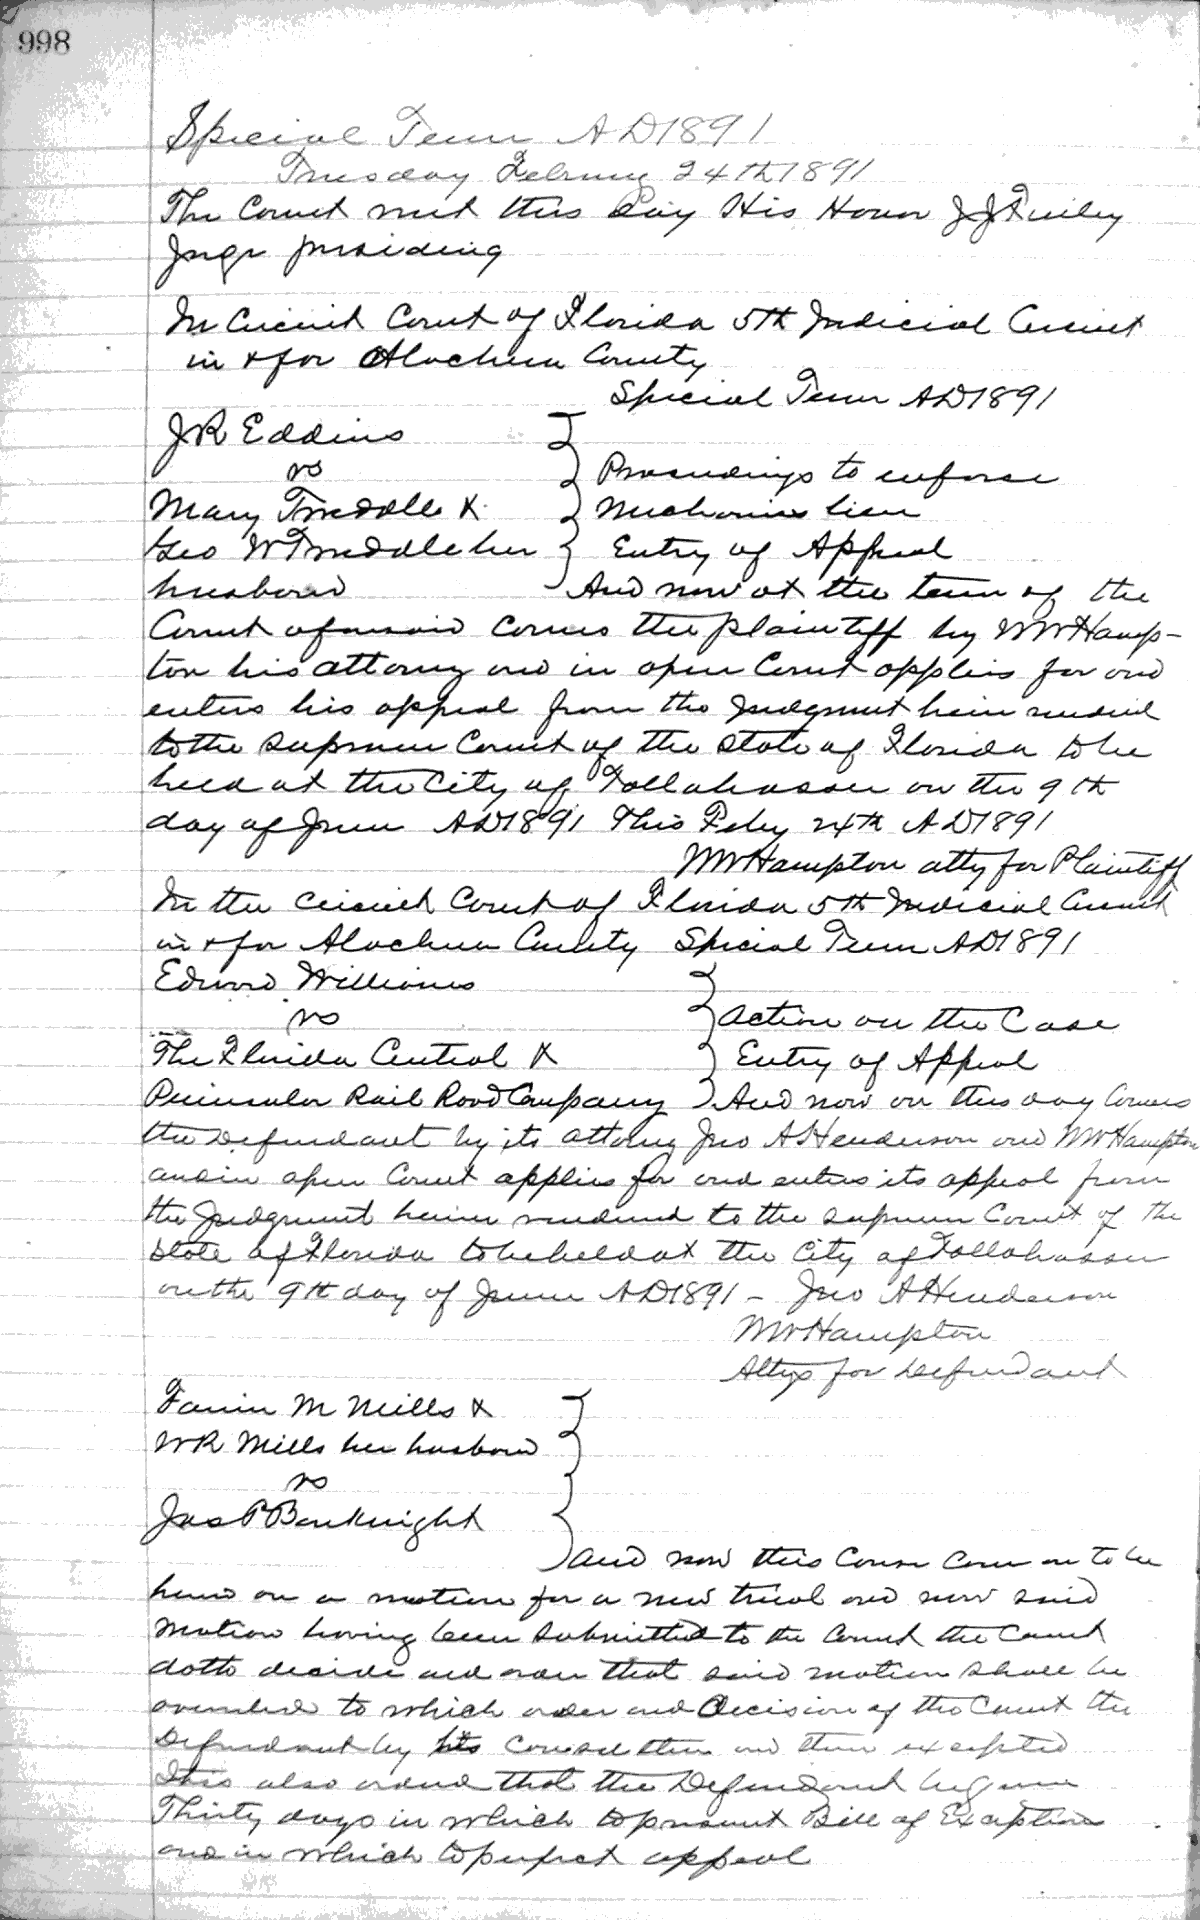 998
Special Term AD 1891
Tuesday February 24th 1891
The Court met this Day His Honor J J Finley
Judge presiding
In Circuit Court of Florida 5th Judicial Circuit
in & for Alachua County
Special Term AD 1891
J R Eddins
vs
Proceedings to enforce
Mary Tweddle &
Mechanics lien
Geo W Tweddle her
Entry of Appeal
husband
And now at the term of the
Court aforesaid comes the plaintiff by W W Hamp-
ton his attorney and in open Court applies for and
enters his appeal from the Judgment herein rendered
to the Supreme Court of the State of Florida to be
held at the City of Tallahassee on the 9th
day of June AD 1891 This Feby 24th AD 1891
W W Hampton atty for Plaintiff
In the Circuit Court of Florida 5th Judicial Circuit
in & for Alachua County Special Term AD 1891
Edward Williams
vs
Action on the Case
The Florida Central &
Entry of Appeal
Peninsular Rail Road Company
And now on this day Comes
the Defendant by its attorney Jno A Henderson and W W Hampton
and in open Court applies for and enters its appeal from
the Judgment herein rendered to the Supreme Court of the
State of Florida to be held at the City of Tallahassee
on the 9th day of June AD 1891 – Jno A Henderson
W W Hampton
Attys for Defendant
Fannie M Mills &
W R Mills her husband
vs
Jas P Bouknight
And now this Cause Came on to be
heard on a motion for a new trial and now said
Motion having been submitted to the Court the Court
doth decide and order that said motion shall be
overruled to which order and Decision of the Court the
Defendant by his Counsel then and there excepted
It is also ordered that the Defendant be given
Thirty days in which to present Bill of Exceptions
and in which to perfect appeal